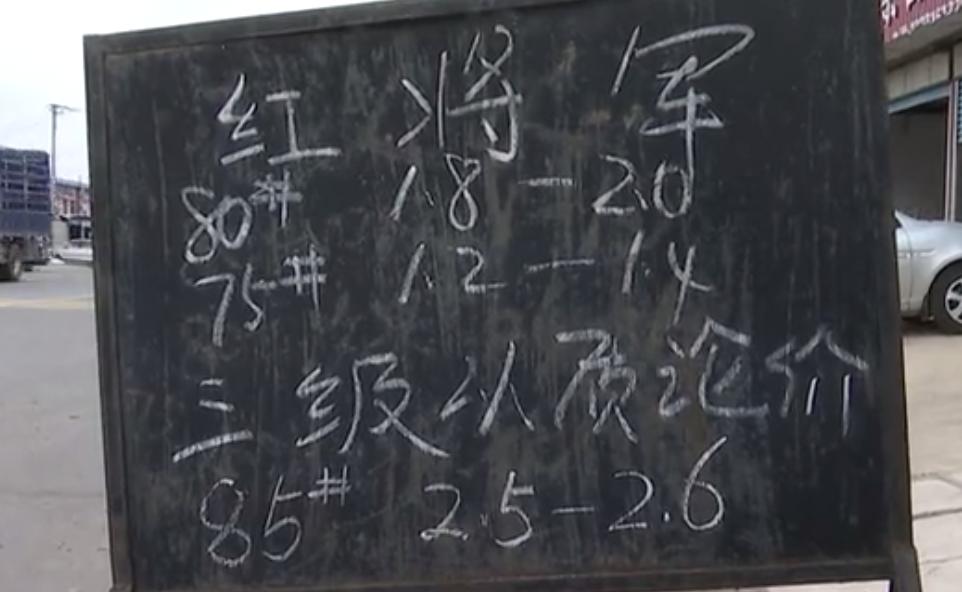 红将军
80# 1.8-2.0
75# 1.2-1.4
三级以质论价
85# 2.5-2.6